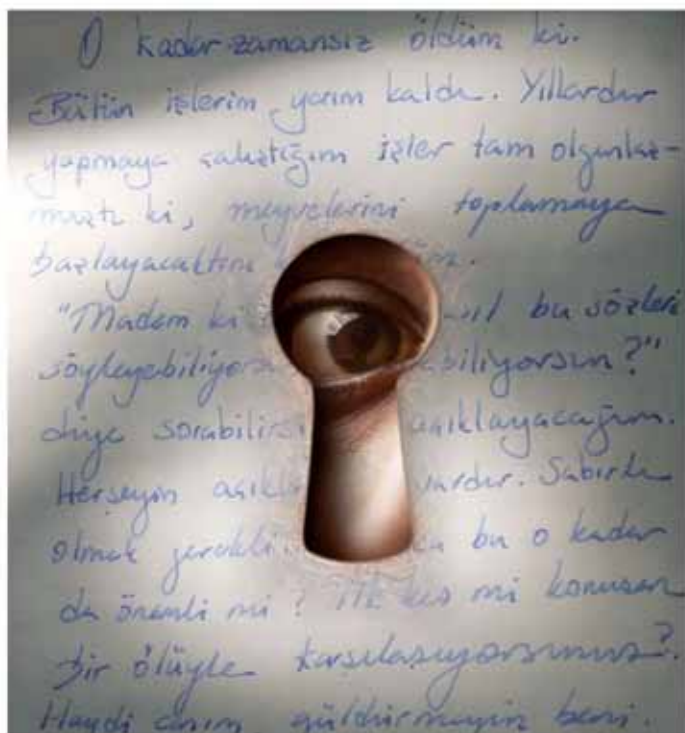 O kadar zamansız öldüm ki.
Bütün işlerim yarım kaldı. Yıllardır
yapmaya çalıştığım işler tam olgunlaş-
mıştı ki, meyvelerini toplamaya
başlayacaktım
"Madem ki bu sözleri
söyleyebiliyorsun?"
diye açıklayacağım.
Herşeyin vardır. Sabırlı
olmak bu o kadar
da önemli mi? İlk kes mi konuşan
bir ölüyle karşılaşıyorsunuz?
Haydi canım güldürmeyin beni.